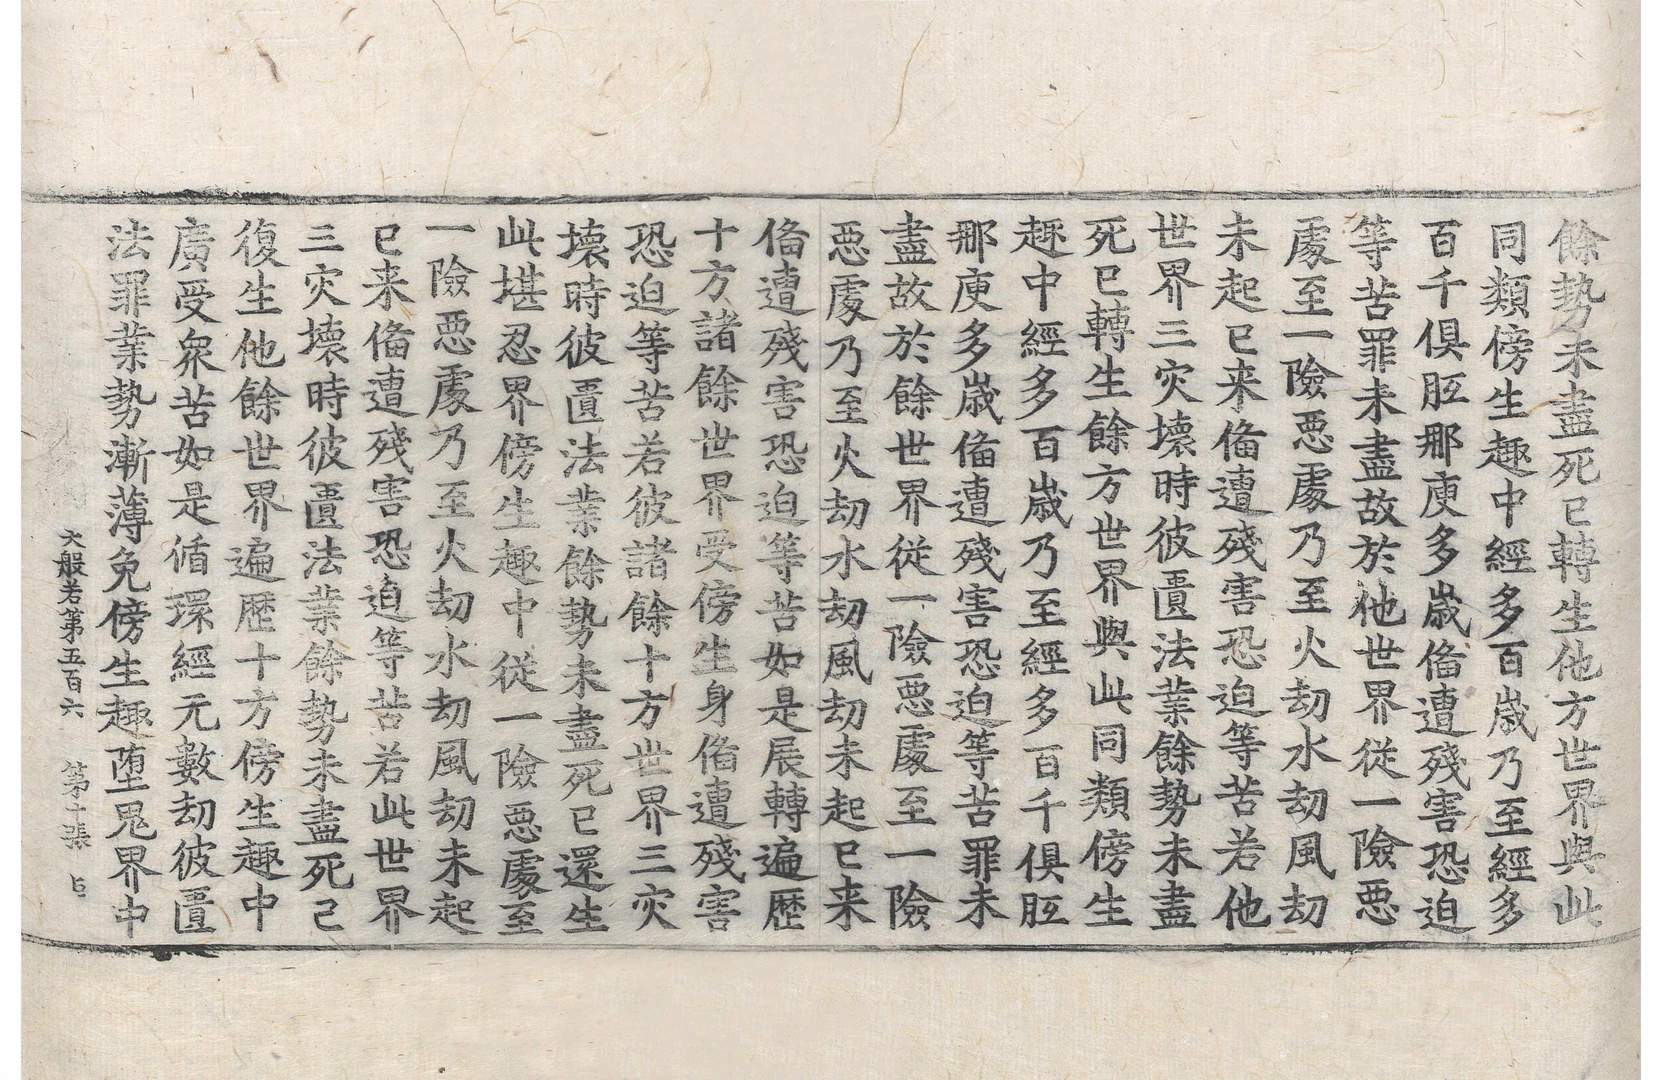 餘勢未盡死已轉生他方世界與此
同類傍生趣中經多百歲乃至經多
百千俱胝那庾多歲俻遭殘害恐迫
等苦罪未盡故於他世界從一險惡
處至一險惡處乃至火劫水劫風劫
未起已来俻遭殘害恐迫等苦若他
世界三灾壞時彼匱法業餘勢未盡
死已轉生餘方世界與此同類傍生
趣中經多百歲乃至經多百千俱胝
那庾多歲俻遭殘害恐迫等苦罪未
盡故於餘世界從一險惡處至一險
惡處乃至火劫水劫風劫未起已来
俻遭殘害恐迫等苦如是展轉遍歷
十方諸餘世界受傍生身俻遭殘害
恐迫等苦若彼諸餘十方世界三灾
壞時彼匱法業餘勢未盡死已還生
此堪忍界傍生趣中從一險惡處至
一險惡處乃至火劫水劫風劫未起
已来俻遭殘害恐迫等苦若此世界
三灾壞時彼匱法業餘勢未盡死已
復生他餘世界遍歷十方傍生趣中
廣受衆苦如是循環經无數劫彼匱
法罪業勢漸薄免傍生趣墮鬼界中
大般若第五百六 第十張